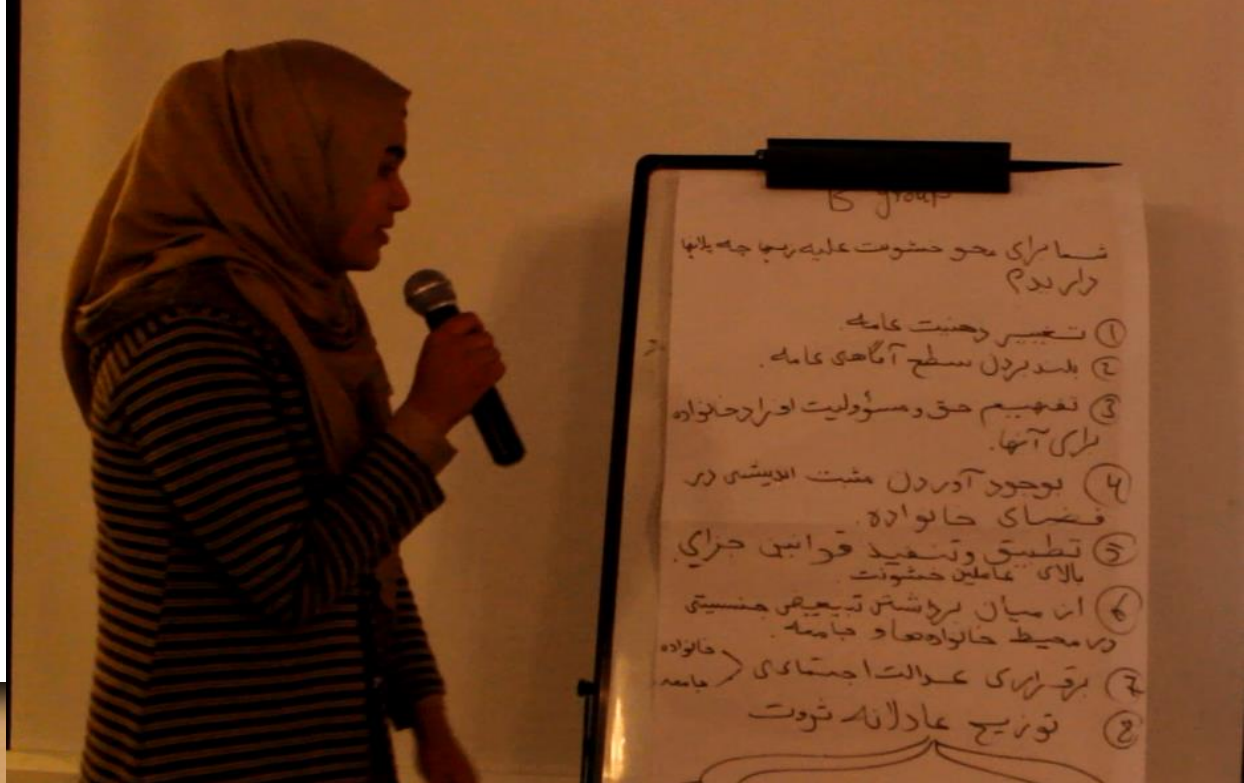 B group
شما برای محو خشونت علیه زنها چه پلانها
دارید؟
① تغییر ذهنیت عامه.
② بلند بردن سطح آگاهی عامه.
③ تفهیم حق و مسؤولیت افراد خانواده
برای آنها.
④ بوجود آوردن مثبت اندیشی در
فضای خانواده.
⑤ تطبیق و تنفیذ قوانین جزای
بالای عاملین خشونت
⑥ از میان برداشتن تبعیض جنسیتی
در محیط خانواده‌ها و جامعه.
⑦ برقراری عدالت اجتماعی < خانواده
جامعه
⑧ توزیع عادلانه ثروت